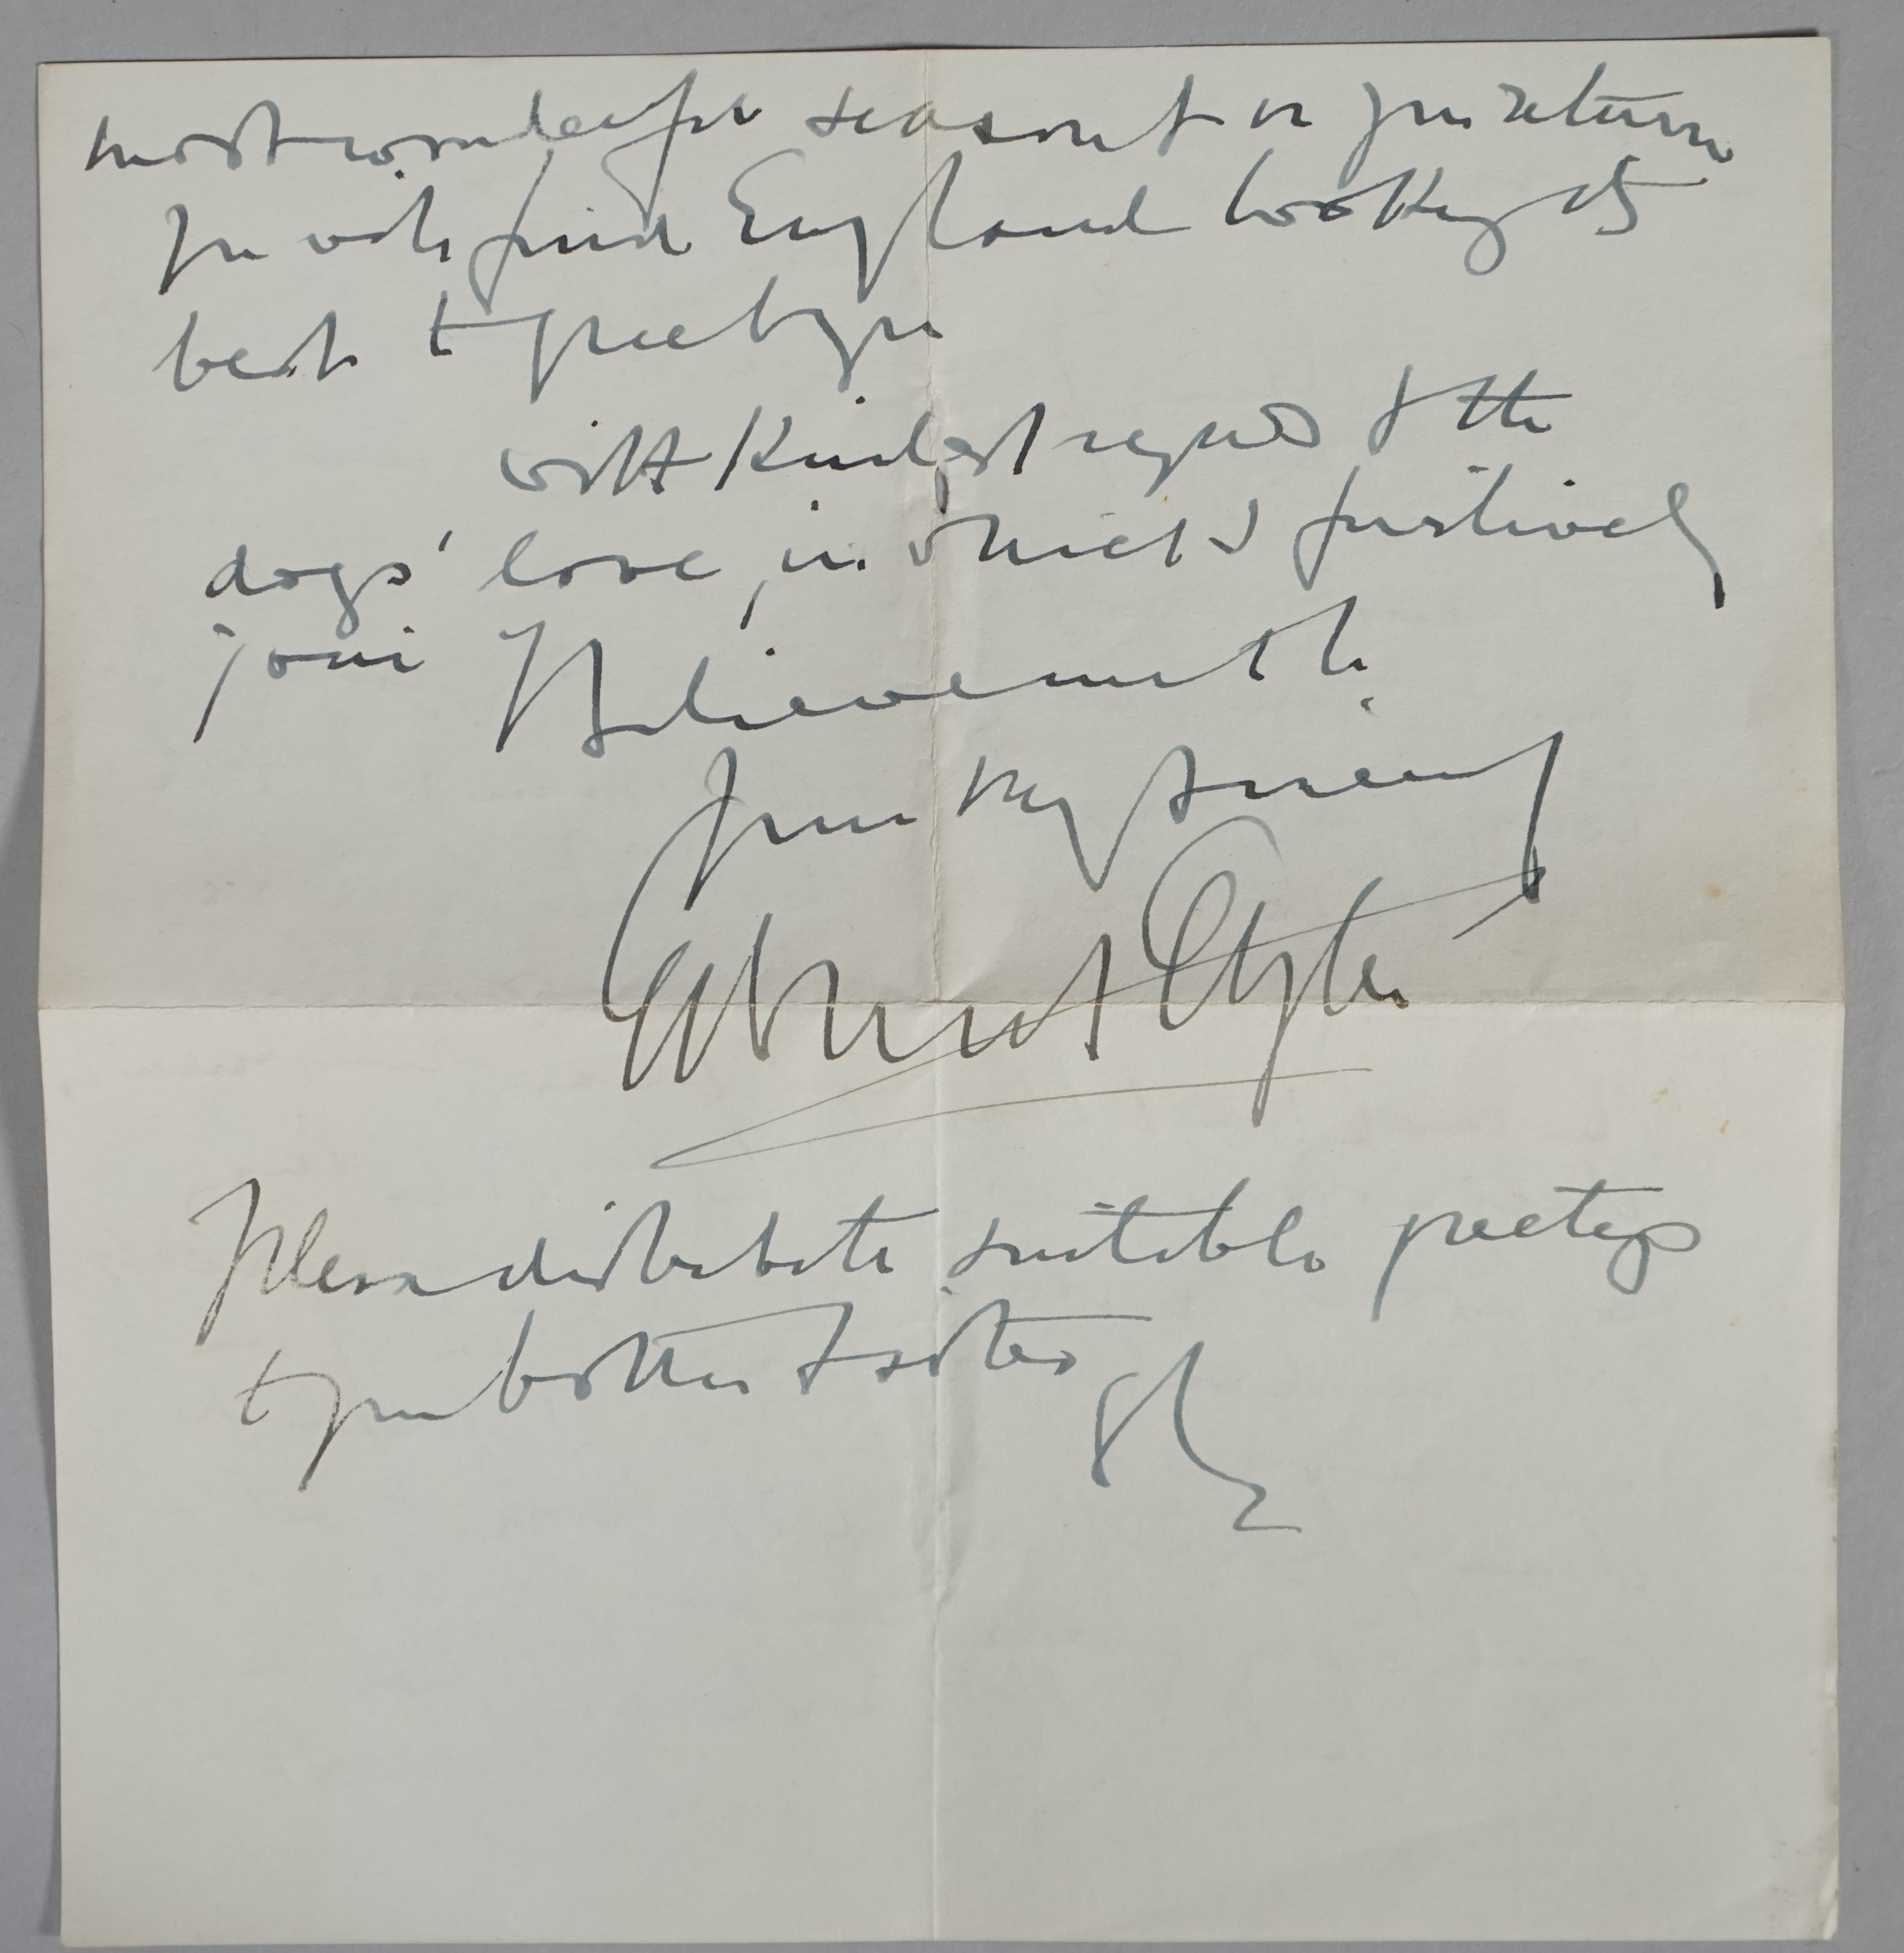 most wonderful season & on your return
you will find England looking its
best to greet you
with kindest regards & the
dogs' love, in which I furtively
join / Believe me to be
Your very sincerely
Please distribute suitable greetings
to your brothers & sisters